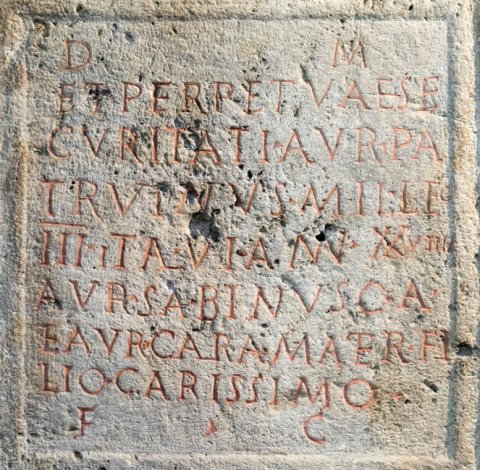 D M
ET·PERPETVAESE
CVRITATI·AVR·PA
TRVINVS·MIL·LE
III·ITAL·VI·AN XXVIIII
AVR·SABINVS·C·A·
E AVR·CARA MATER·FI
LIO·CARISSIMO
F C